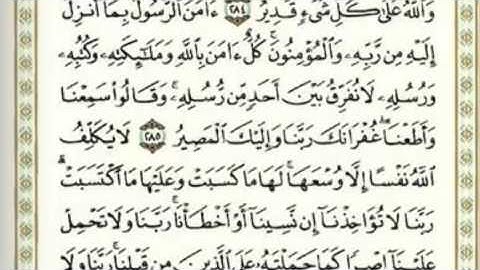 وَٱللَّهُ عَلَىٰ كُلِّ شَىْءٍ قَدِيرٌ ٢٨٤ ءَامَنَ ٱلرَّسُولُ بِمَآ أُنزِلَ
إِلَيْهِ مِن رَّبِّهِۦ وَٱلْمُؤْمِنُونَ ۚ كُلٌّ ءَامَنَ بِٱللَّهِ وَمَلَـٰٓئِكَتِهِۦ وَكُتُبِهِۦ
وَرُسُلِهِۦ لَا نُفَرِّقُ بَيْنَ أَحَدٍ مِّن رُّسُلِهِۦ ۚ وَقَالُوا۟ سَمِعْنَا
وَأَطَعْنَا ۖ غُفْرَانَكَ رَبَّنَا وَإِلَيْكَ ٱلْمَصِيرُ ٢٨٥ لَا يُكَلِّفُ
ٱللَّهُ نَفْسًا إِلَّا وُسْعَهَا ۚ لَهَا مَا كَسَبَتْ وَعَلَيْهَا مَا ٱكْتَسَبَتْ ۗ
رَبَّنَا لَا تُؤَاخِذْنَآ إِن نَّسِينَآ أَوْ أَخْطَأْنَا ۚ رَبَّنَا وَلَا تَحْمِلْ
عَلَيْنَآ إِصْرًا كَمَا حَمَلْتَهُۥ عَلَى ٱلَّذِينَ مِن قَبْلِنَا ۚ رَبَّنَا وَلَا